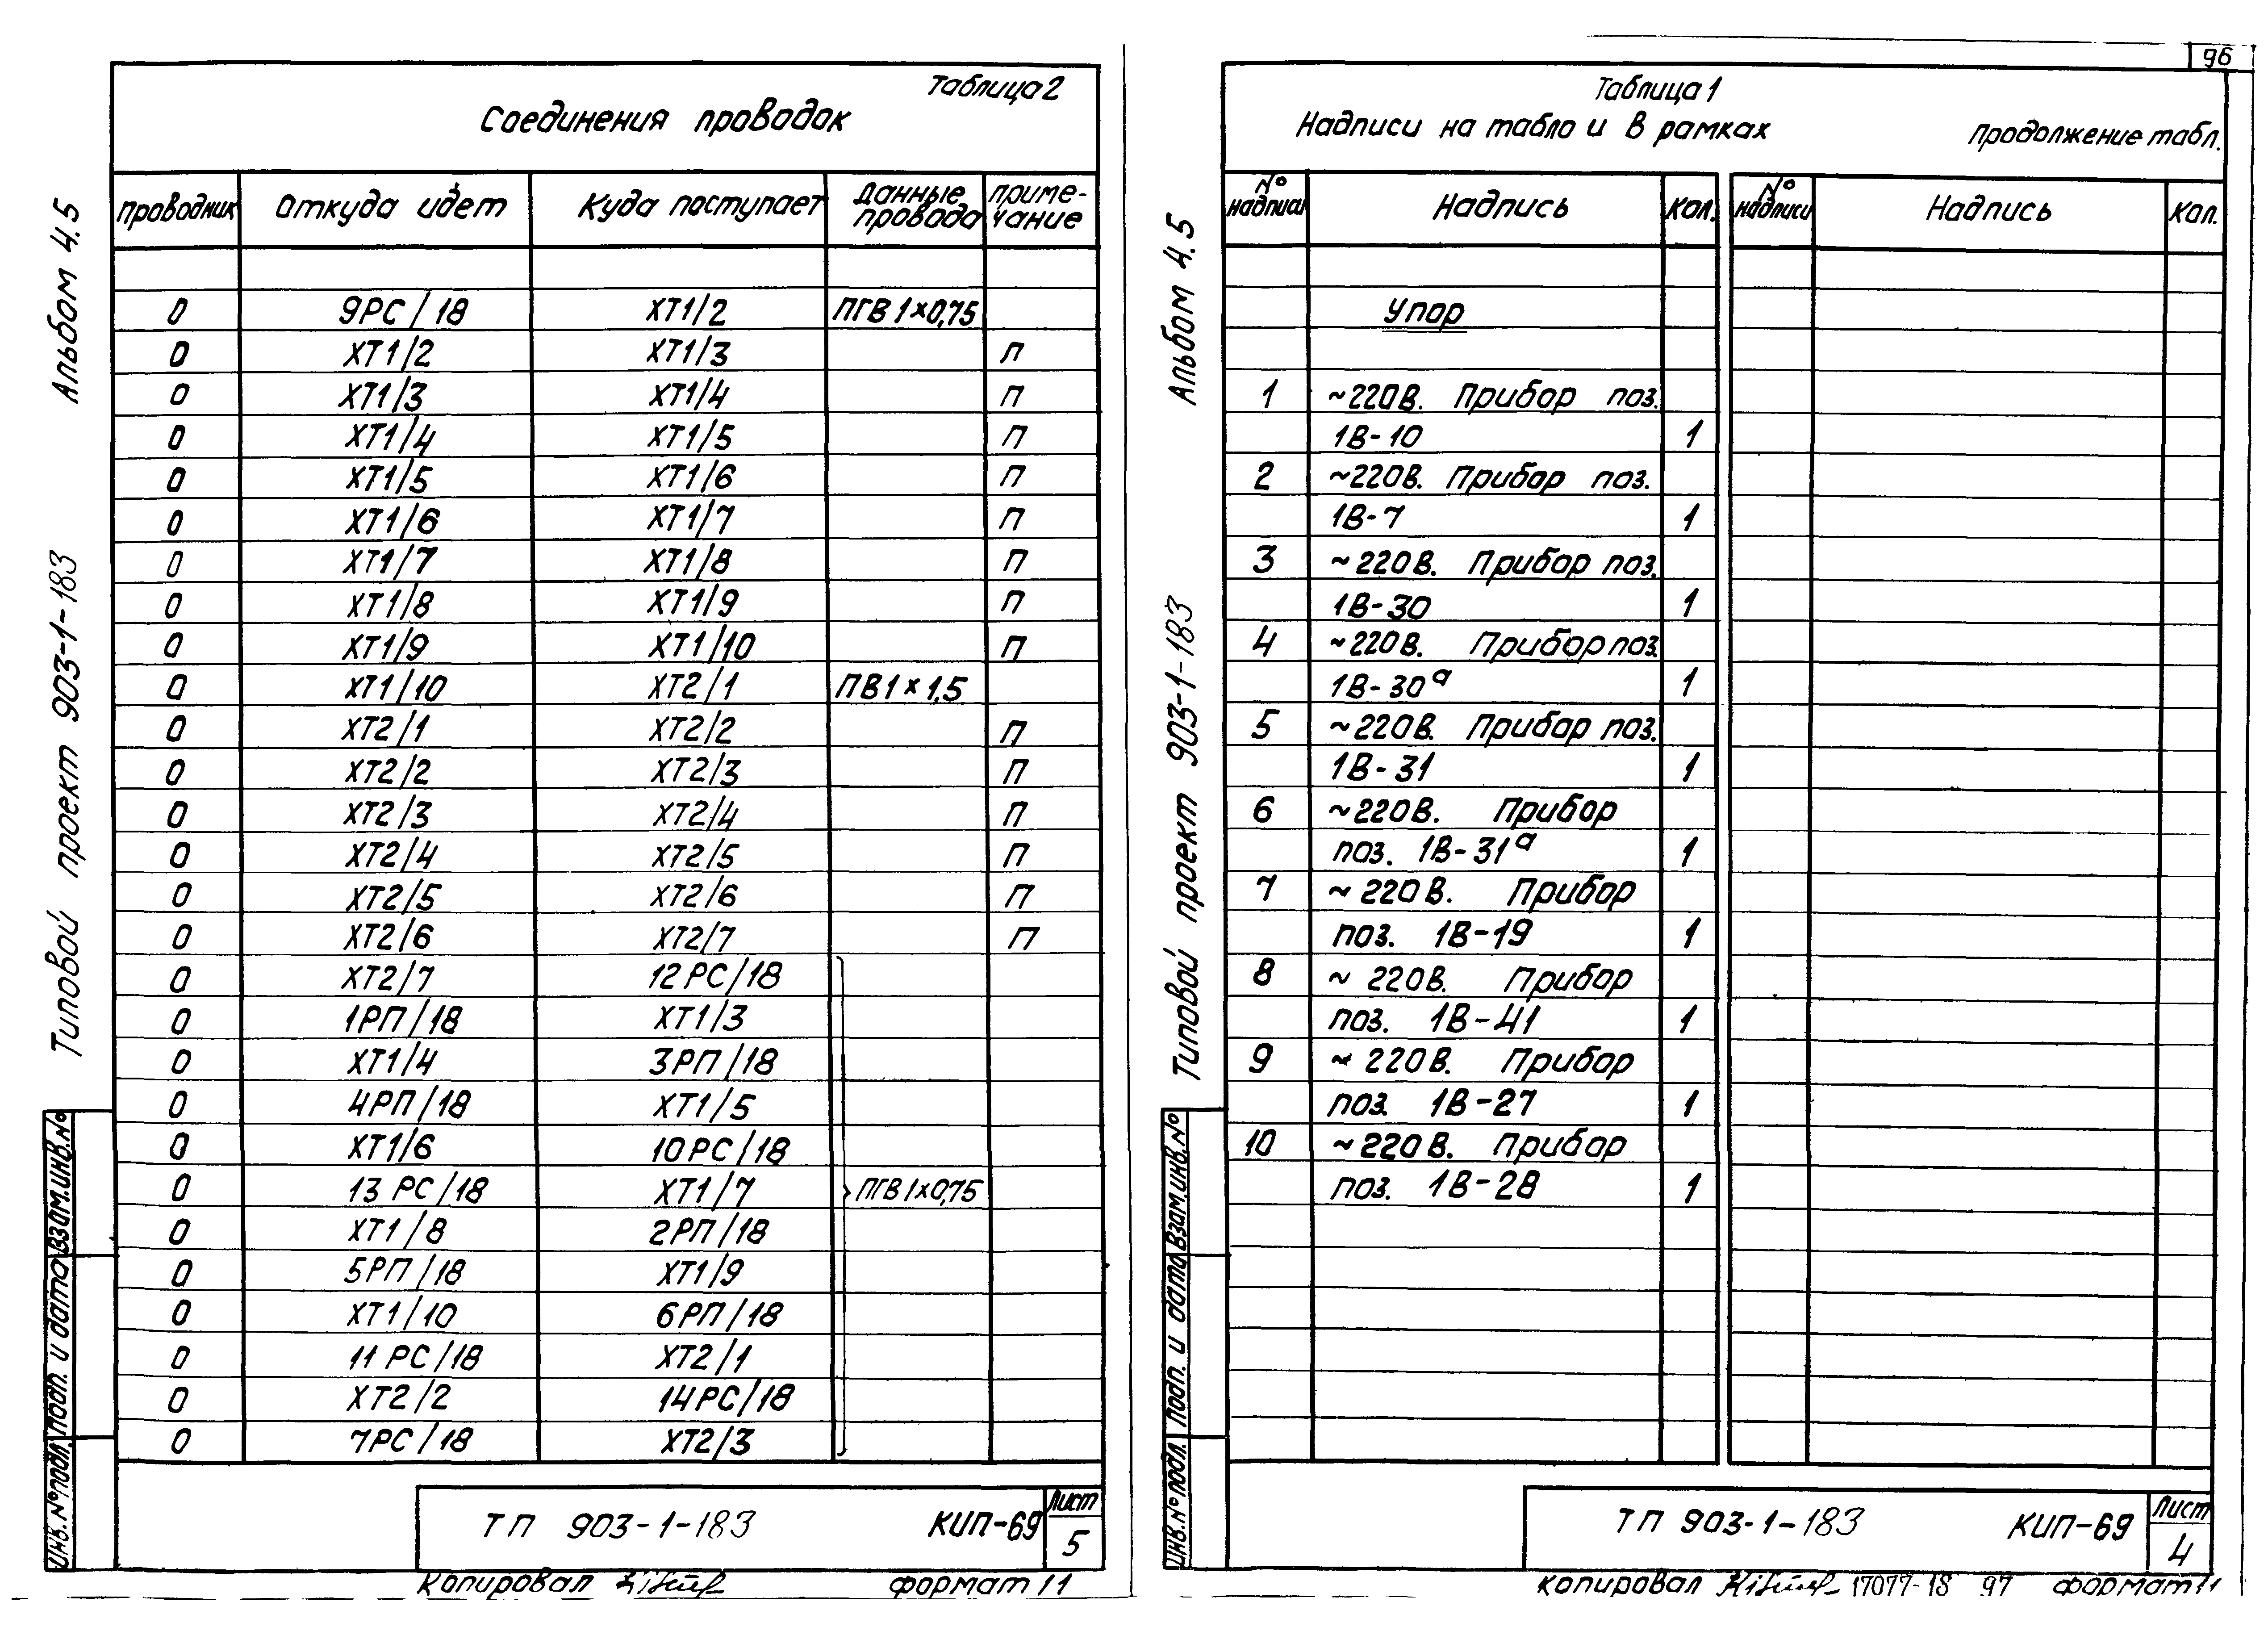 Таблица 2
Соединения проводок
Проводник Откуда идет Куда поступает Данные провода Примечание
0 9РС/18 ХТ1/2 ПГВ 1×0,75
0 ХТ1/2 ХТ1/3 П
0 ХТ1/3 ХТ1/4 П
0 ХТ1/4 ХТ1/5 П
0 ХТ1/5 ХТ1/6 П
0 ХТ1/6 ХТ1/7 П
0 ХТ1/7 ХТ1/8 П
0 ХТ1/8 ХТ1/9 П
0 ХТ1/9 ХТ1/10 П
0 ХТ1/10 ХТ2/1 ПВ 1×1,5
0 ХТ2/1 ХТ2/2 П
0 ХТ2/2 ХТ2/3 П
0 ХТ2/3 ХТ2/4 П
0 ХТ2/4 ХТ2/5 П
0 ХТ2/5 ХТ2/6 П
0 ХТ2/6 ХТ2/7 П
0 ХТ2/7 12РС/18
0 1РП/18 ХТ1/3
0 ХТ1/4 3РП/18
0 4РП/18 ХТ1/5
0 ХТ1/6 10РС/18
0 13РС/18 ХТ1/7 ПГВ 1×0,75
0 ХТ1/8 2РП/18
0 5РП/18 ХТ1/9
0 ХТ1/10 6РП/18
0 11РС/18 ХТ2/1
0 ХТ2/2 14РС/18
0 7РС/18 ХТ2/3
ТП 903-1-183 КИП-69 Лист 5
Копировал формат 11
Альбом 4.5
Типовой проект 903-1-183
Взам.инв.№
Подп. и дата
Инв.№подл.
96
Таблица 1
Надписи на табло и в рамках Продолжение табл.
№ надписи Надпись Кол. № надписи Надпись Кол.
Упор
1 ~220В. Прибор поз.
1В-10 1
2 ~220В. Прибор поз.
1В-7 1
3 ~220В. Прибор поз.
1В-30 1
4 ~220В. Прибор поз.
1В-30а 1
5 ~220В. Прибор поз.
1В-31 1
6 ~220В. Прибор
поз. 1В-31а 1
7 ~220В. Прибор
поз. 1В-19 1
8 ~220В. Прибор
поз. 1В-41 1
9 ~220В. Прибор
поз. 1В-27 1
10 ~220В. Прибор
поз. 1В-28 1
ТП 903-1-183 КИП-69 Лист 4
Копировал 17077-18 97 формат 11
Альбом 4.5
Типовой проект 903-1-183
Взам.инв.№
Подп. и дата
Инв.№подл.